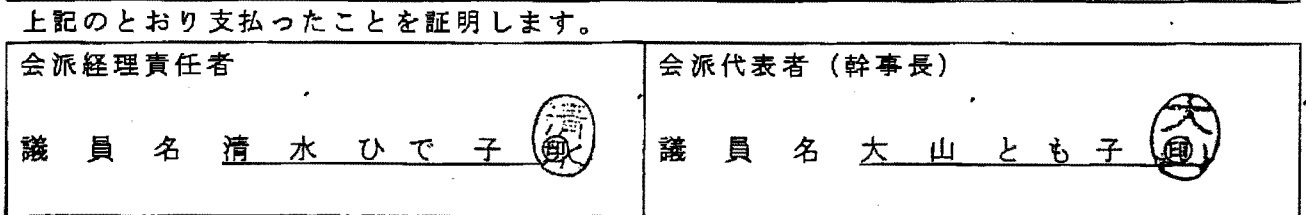 上記のとおり支払ったことを証明します。
会派経理責任者
議員名 清水ひで子 ㊞
会派代表者（幹事長）
議員名 大山とも子 ㊞